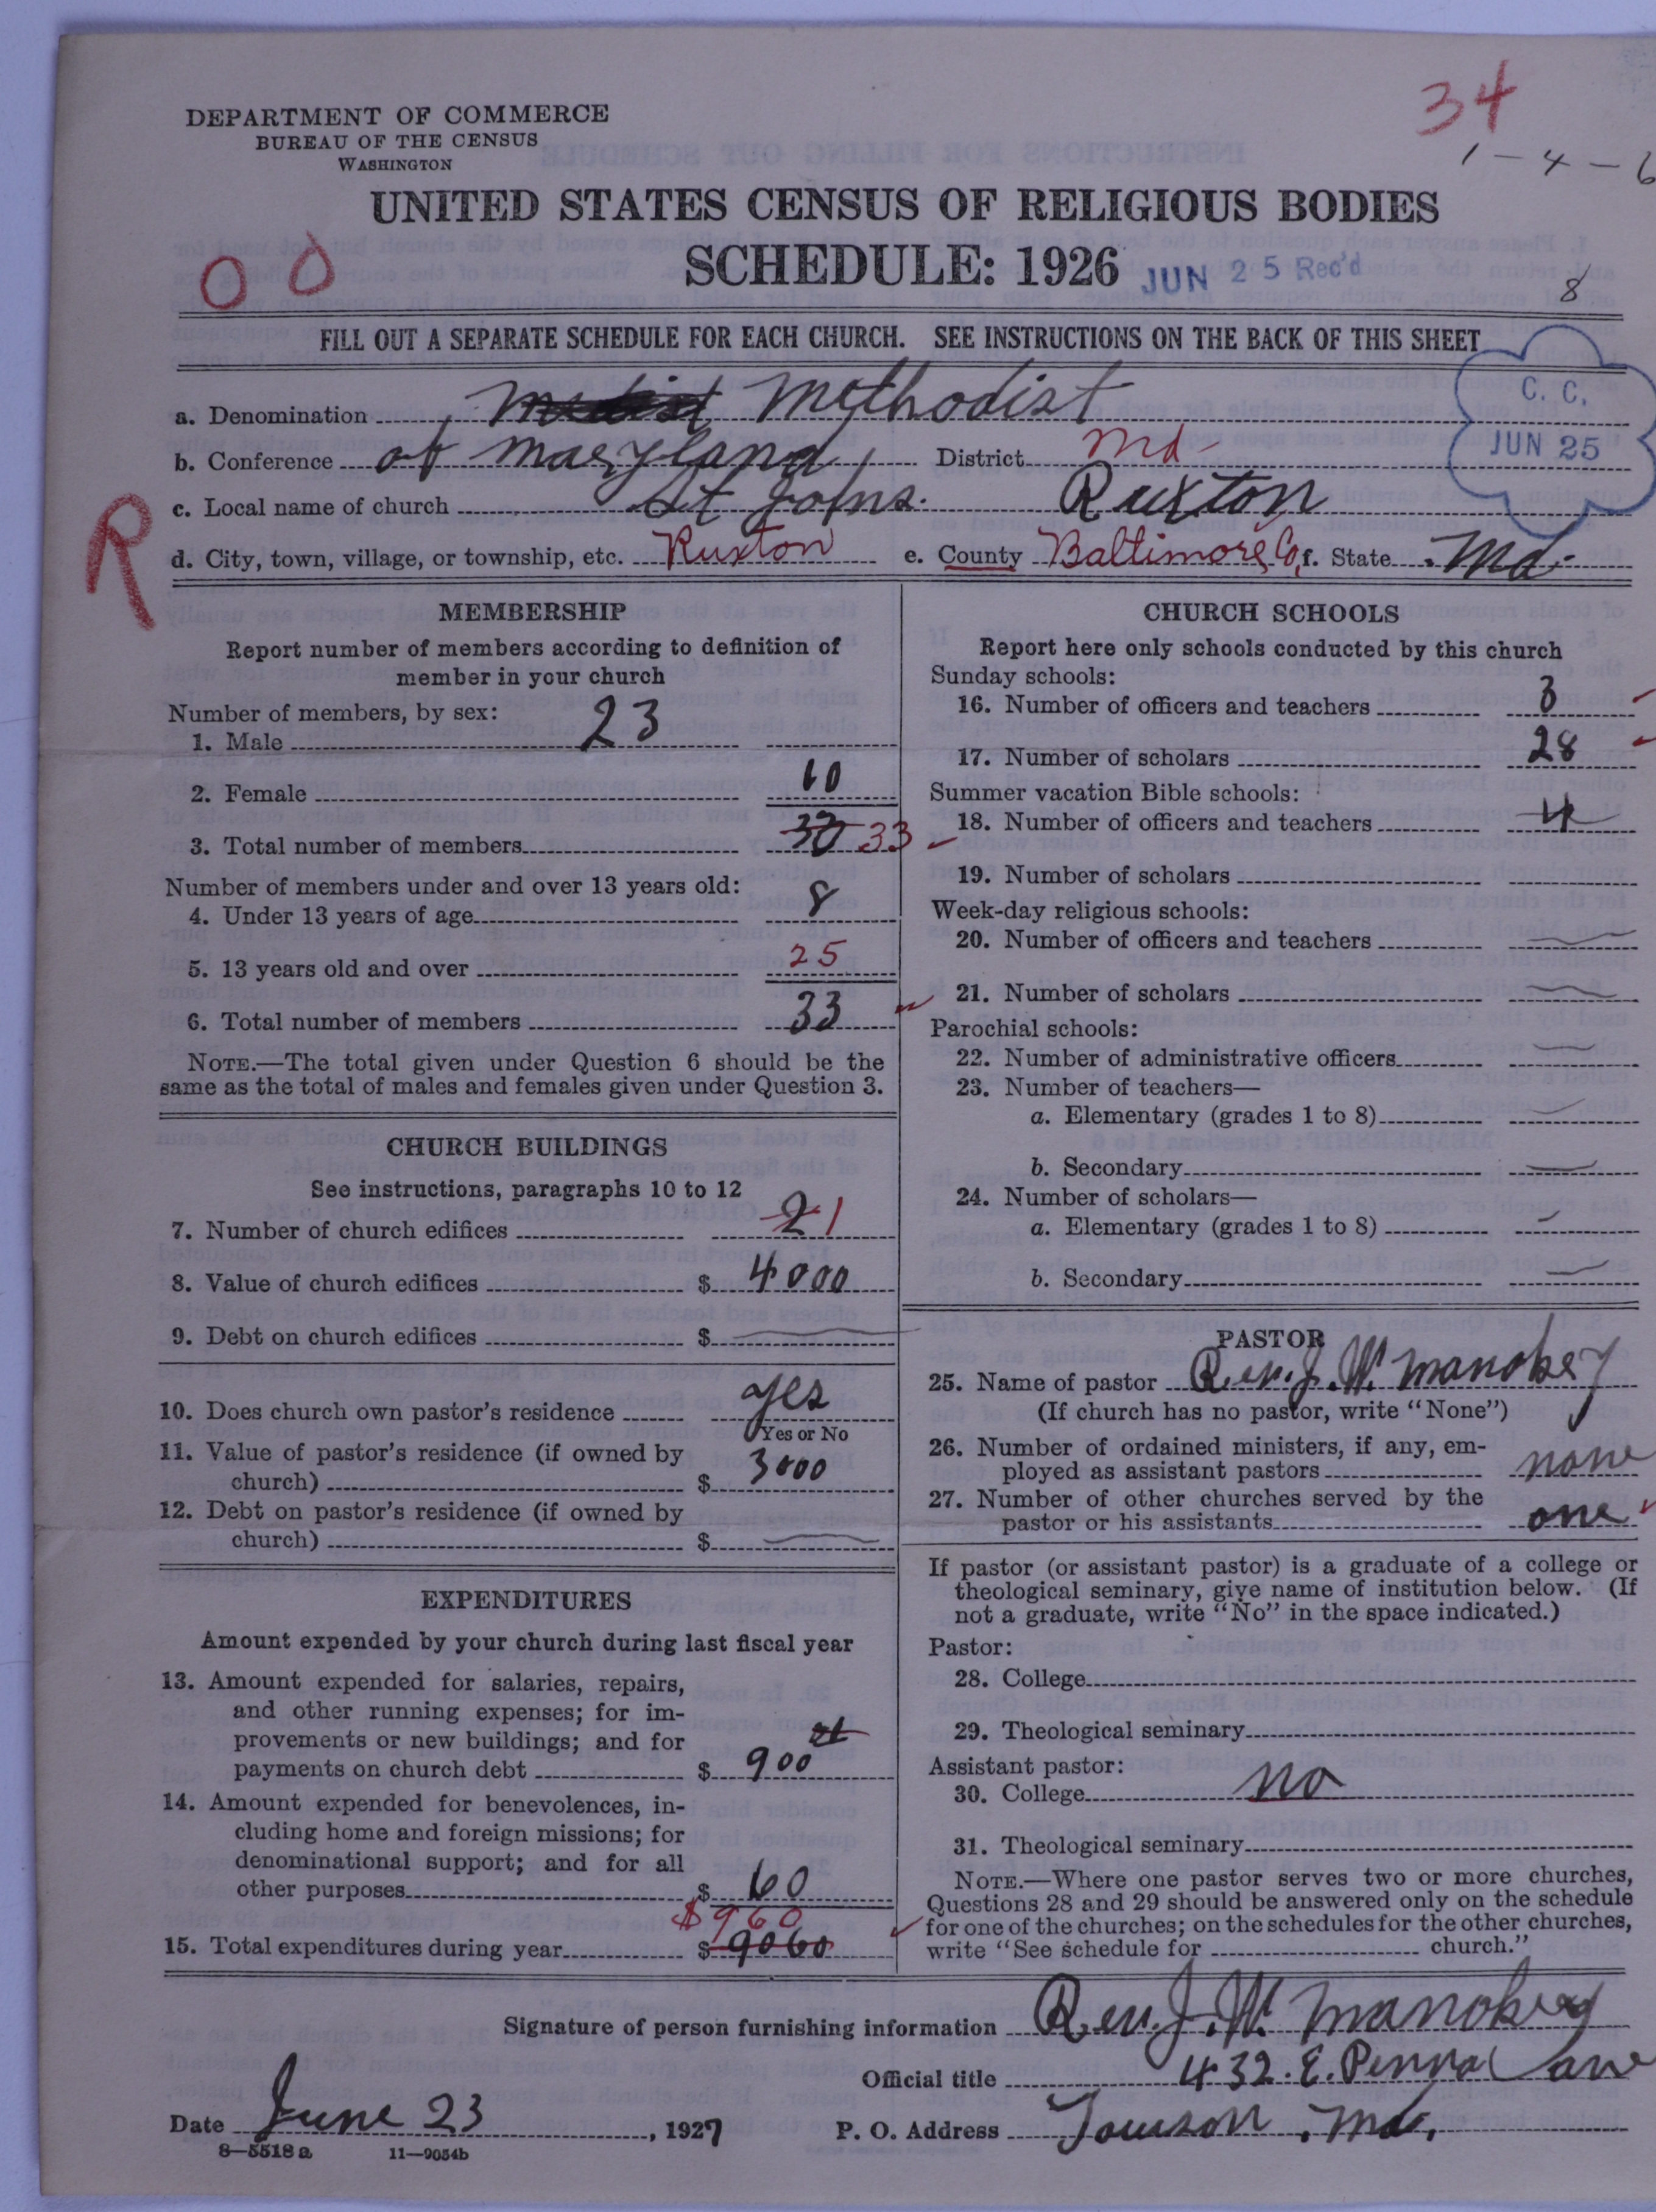 34
1-4-6
DEPARTMENT OF COMMERCE
BUREAU OF THE CENSUS
WASHINGTON
UNITED STATES CENSUS OF RELIGIOUS BODIES
SCHEDULE: 1926
JUN 25 Rec'd
8
00
FILL OUT A SEPARATE SCHEDULE FOR EACH CHURCH. SEE INSTRUCTIONS ON THE BACK OF THIS SHEET
C. C.
JUN 25
a. Denomination Methodist
b. Conference of Maryland District Md
c. Local name of church St Johns. Ruxton
R
d. City, town, village, or township, etc. Ruxton e. County Baltimore Co, f. State Md.
MEMBERSHIP
Report number of members according to definition of
member in your church
Number of members, by sex:
1. Male 23
2. Female 10
3. Total number of members 33 33
Number of members under and over 13 years old:
4. Under 13 years of age 8
5. 13 years old and over 25
6. Total number of members 33
NOTE.—The total given under Question 6 should be the
same as the total of males and females given under Question 3.
CHURCH BUILDINGS
See instructions, paragraphs 10 to 12
7. Number of church edifices 2 1
8. Value of church edifices $ 4000
9. Debt on church edifices $
10. Does church own pastor's residence yes
Yes or No
11. Value of pastor's residence (if owned by
church) $ 3000
12. Debt on pastor's residence (if owned by
church) $
EXPENDITURES
Amount expended by your church during last fiscal year
13. Amount expended for salaries, repairs,
and other running expenses; for im-
provements or new buildings; and for
payments on church debt $ 900
14. Amount expended for benevolences, in-
cluding home and foreign missions; for
denominational support; and for all
other purposes $ 60
$960
15. Total expenditures during year $ 9060
CHURCH SCHOOLS
Report here only schools conducted by this church
Sunday schools:
16. Number of officers and teachers 3
17. Number of scholars 28
Summer vacation Bible schools:
18. Number of officers and teachers 4
19. Number of scholars
Week-day religious schools:
20. Number of officers and teachers
21. Number of scholars
Parochial schools:
22. Number of administrative officers
23. Number of teachers—
a. Elementary (grades 1 to 8)
b. Secondary
24. Number of scholars—
a. Elementary (grades 1 to 8)
b. Secondary
PASTOR
25. Name of pastor Rev. J. W. Manokey
(If church has no pastor, write "None")
26. Number of ordained ministers, if any, em-
ployed as assistant pastors none
27. Number of other churches served by the
pastor or his assistants one
If pastor (or assistant pastor) is a graduate of a college or
theological seminary, give name of institution below. (If
not a graduate, write "No" in the space indicated.)
Pastor:
28. College
29. Theological seminary
Assistant pastor:
30. College no
31. Theological seminary
NOTE.—Where one pastor serves two or more churches,
Questions 28 and 29 should be answered only on the schedule
for one of the churches; on the schedules for the other churches,
write "See schedule for church."
Signature of person furnishing information Rev. J. W. Manokey
Official title 432. E. Penna ave
Date June 23, 1927 P. O. Address Towson. Md.
8—5518 a 11—9054b